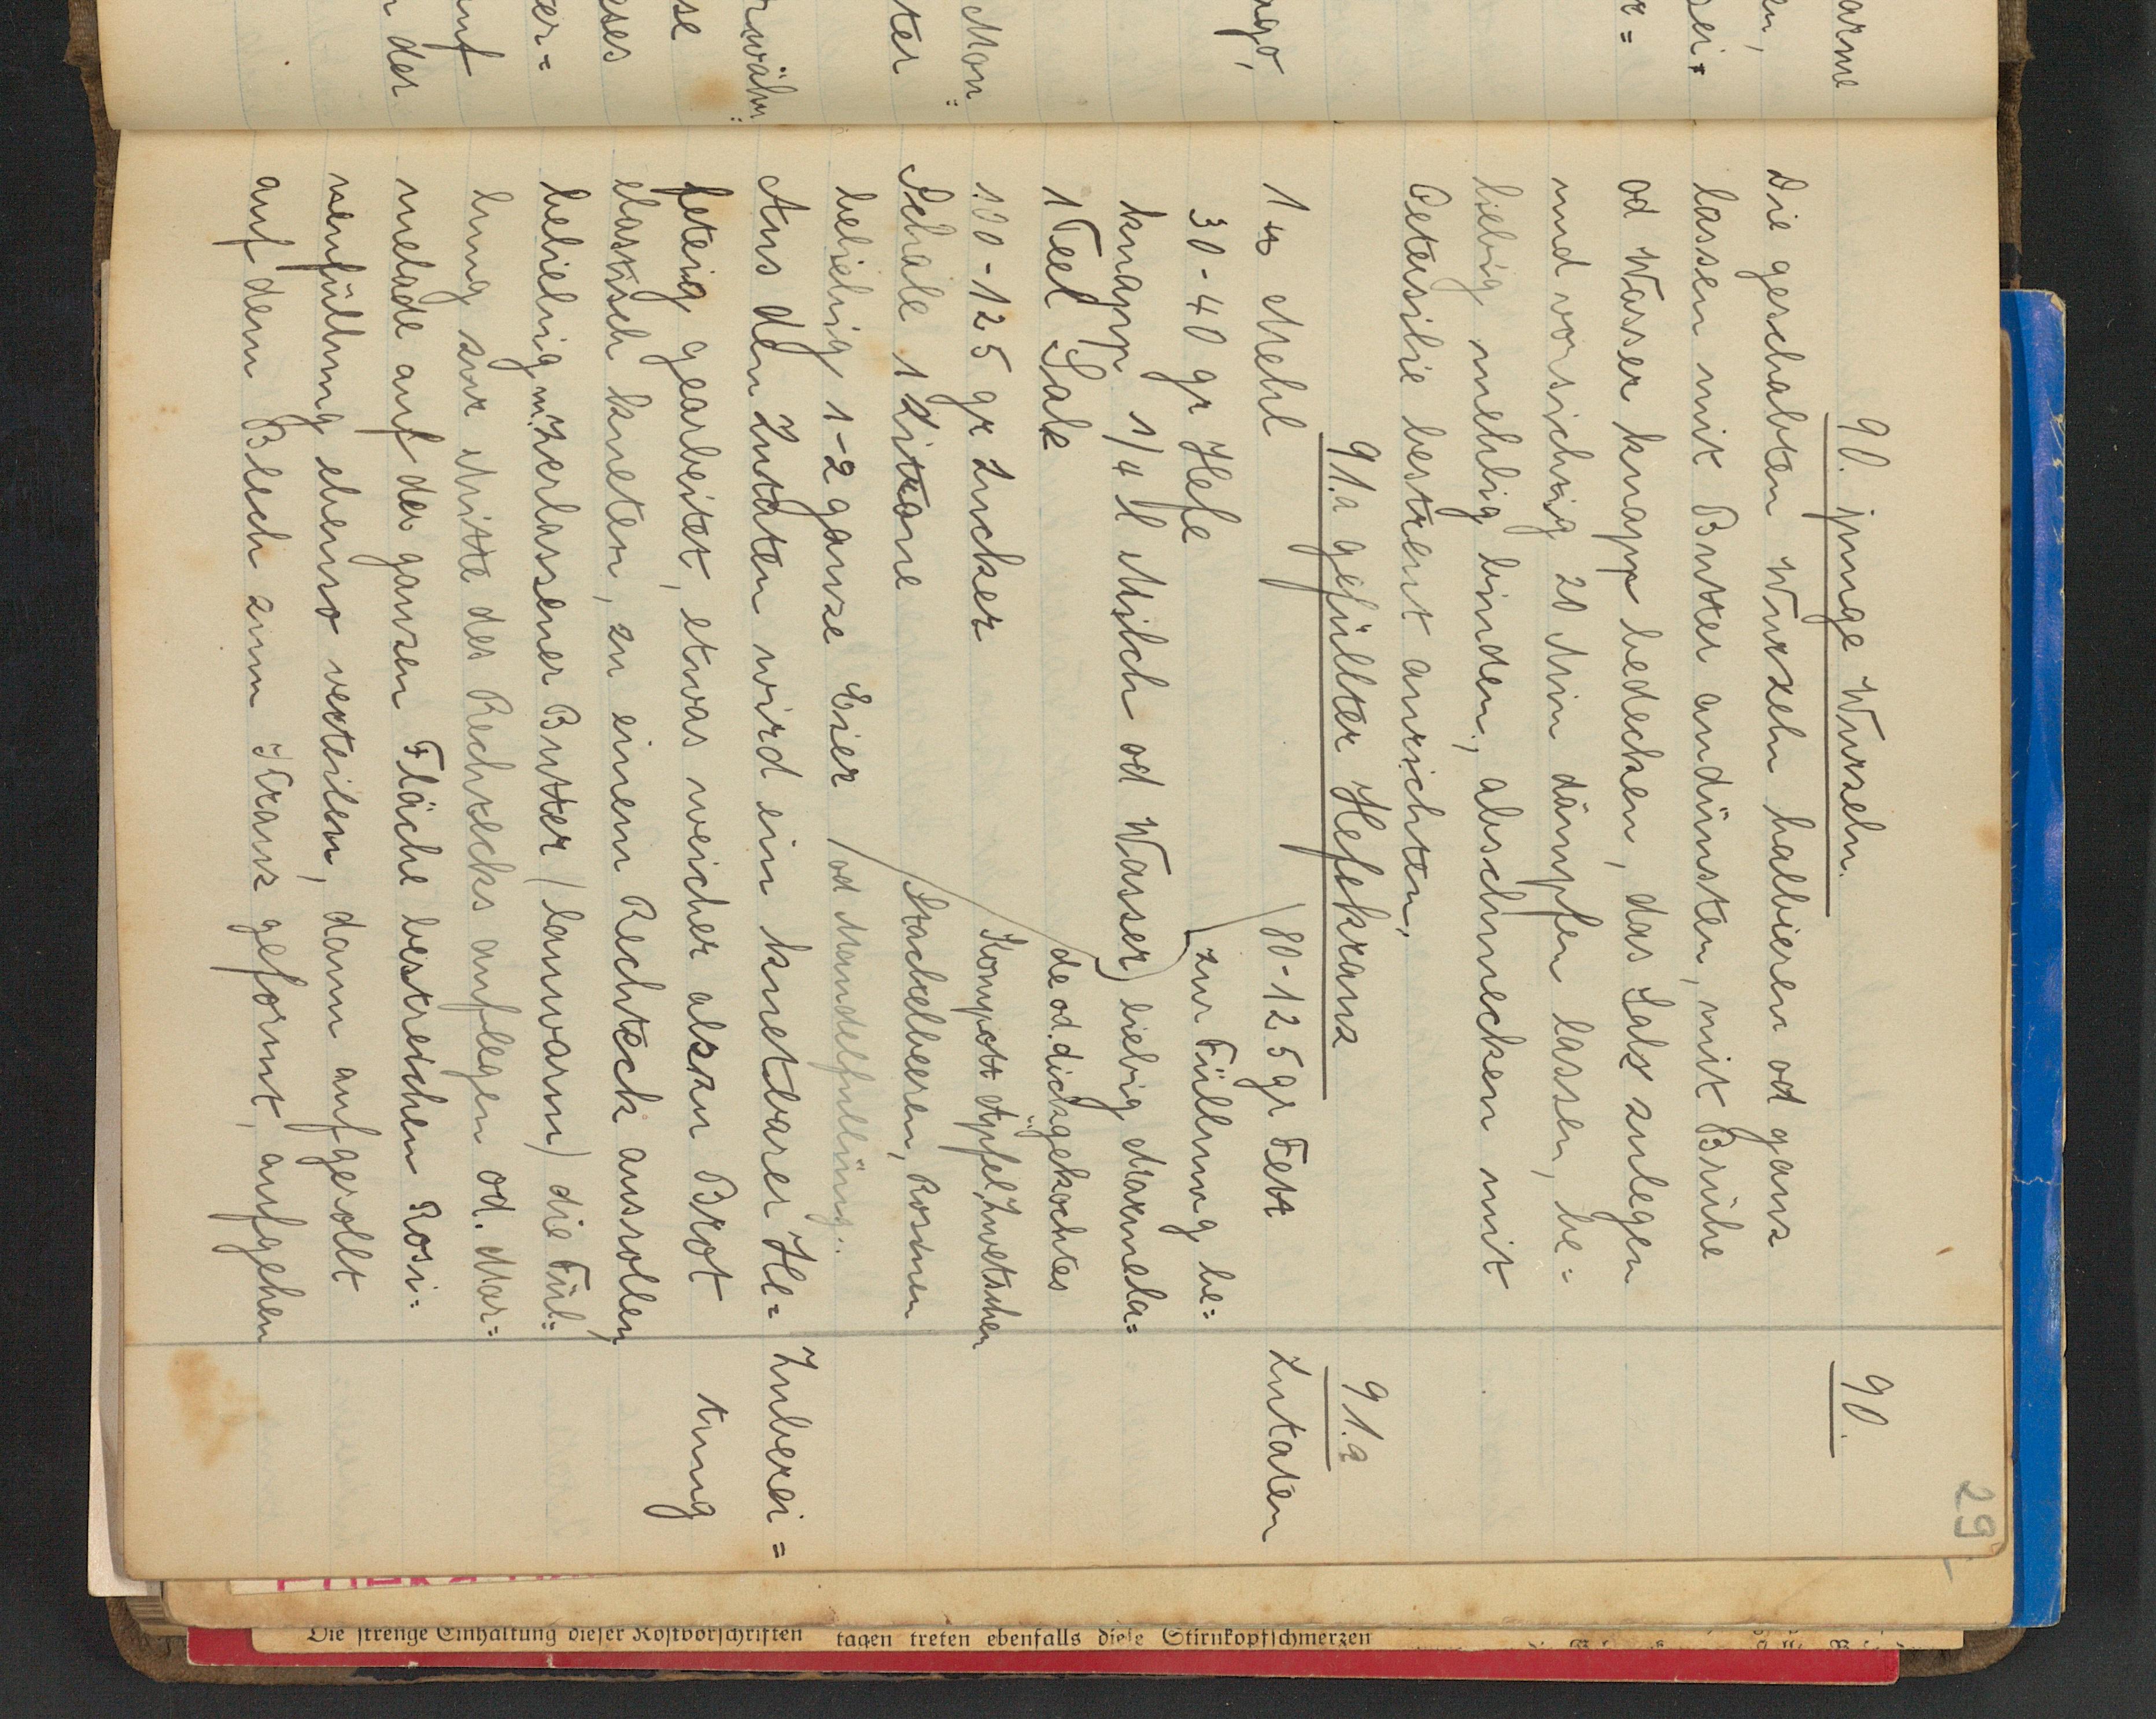 29
90. junge Wurzeln.
90.
Die geschabten Wurzeln halbieren od ganz
lassen mit Butter andünsten, mit Brühe
od Wasser knapp bedecken, das Salz zulegen
und vorsichtig 20 Min dämpfen lassen, be=
liebig mehlig binden, abschmecken mit
Petersilie bestreut anrichten,
91.a gefüllter Hefekranz
91.a
1 ℔ Mehl
80-125 gr Fett
Zutaten
30-40 gr Hefe
zur Füllung be=
knapp 1/4 l Milch od Wasser)
liebig Marmela=
1 Teel Salz
de od. dickgekochtes
100-125 gr Zucker
Kompott Äpfel, Zwetschen
Schale 1 Zitrone
Stachelbeeren, Rosinen
beliebig 1-2 ganze Eier
od Mandelfüllung..
Aus den Zutaten wird ein knetbarer He=
Zuberei=
feteig gearbeitet, etwas weicher als zu Brot
tung
elastisch kneten, zu einem Rechteck ausrollen,
beliebig m. zerlassener Butter (lauwarm) die Fül=
lung zur Mitte des Rechtecks auflegen od. Mar=
melade auf der ganzen Fläche bestreichen Rosi=
nenfüllung ebenso verteilen, dann aufgerollt
auf dem Blech zum Kranz geformt, aufgehen
arme
en,
sei=
r=
ago,
Mon=
ter
rwähn=
se
eses
er=
auf
n der
Die strenge Einhaltung dieser Kostvorschriften
tagen treten ebenfalls diese Stirnkopfschmerzen